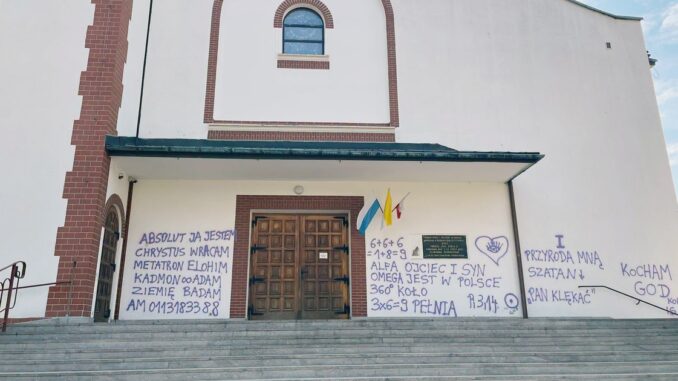 ABSOLUT JA JESTEM
CHRYSTUS WRACAM
METATRON ELOHIM
KADMON ∞ ADAM
ZIEMIĘ BADAM
AM 0113183 3 8,8
6+6+6
=1+8=9
ALFA OJCIEC I SYN
OMEGA JEST W POLSCE
360° KOŁO
3x6=9 PEŁNIA
R 314.
I
PRZYRODA MNĄ
SZATAN ↓
"PAN KLĘKAĆ"
KOCHAM
GOD